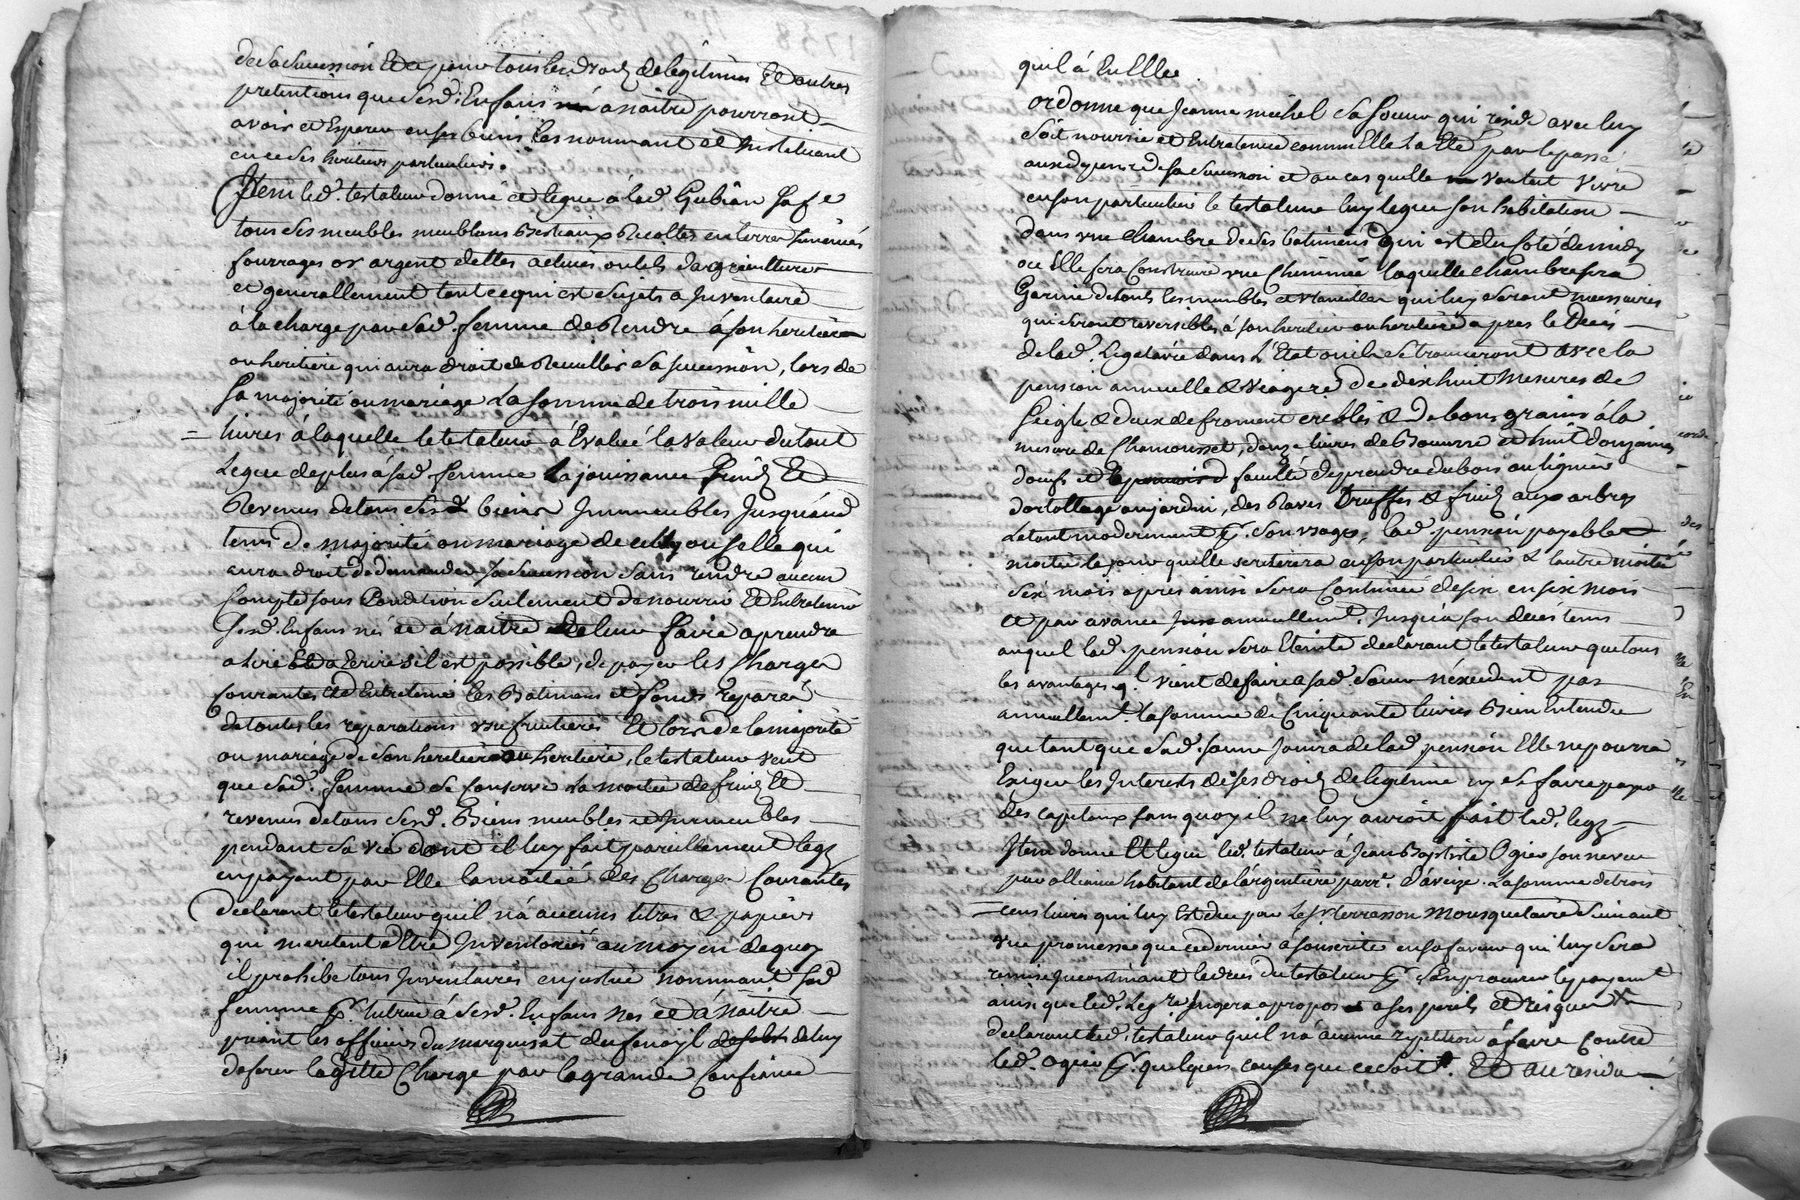 de sa succession Et ce pour tous les droits de legitimes Et autres
pretentions que sesd. Enfans né a naitre pourront
avoir et Esperer en ses biens les nommant et Instituant
en ce ses heritiers particuliers.
Item led. testateur donne et legue à lad. Gubian sa fe
tous ses meubles meublans Bestiaux Recoltes en terre
fourrages or argent dettes actives outils dagriculture
et generallement tout ce qui est sujets a Inventaire
à la charge par sad. femme de Rendre à son heritier
ou heritiere qui aura droit de Recuillir sa succession, lors de
sa majorité ou mariage La somme de trois mille
livres à laquelle le testateur à Evalué la valeur du tout
Legue de plus à sad. femme la jouissance fruits Et
Revenus de tous sesd. biens Immeubles Jusqu'aud.
tems de majorité ou mariage de celuy ou celle qui
aura droit de demander sa succession sans rendre aucun
Compte sous Condition seulement de nourrir Et Entretenir
sesd. Enfans nés et à naitre de leur faire aprendre
a lire Et a Ecrire s'il est possible, de payer les Charges
Courantes et d'Entretenir les Batimens et fonds
de toutes les reparations usufruitieres Et lors de la majorité
ou mariage de son heritier ou heritiere, le testateur veut
que sad. femme se conserve la moitié de fruits Et
revenus de tous sesd. Biens meubles et Immeubles
pendant sa vie dont il luy fait pareillement legs
en payant par Elle la moitié des Charges Courantes
declarant le testateur qu'il n'à aucuns titres & papiers
qui meritent d'Etre Inventoriés au moyen de quoy
il prohibe tous Inventaires en justice nommant sad.
femme pr. tutrice à sesd. Enfans nés et à naitre
priant les officiers du marquisat de fenoyl de luy
deferer lad. Charge par la grande Confiance
qu'il à En Elle.
ordonne que Jeanne michel sa soeur qui reside avec luy
soit nourrie et Entretenue comme Elle l'a Eté par le passé
aux depens de sa succession et au cas qu'elle voulut vivre
en son particulier le testateur luy legue son habitation
dans une chambre de ses batimens qui est du coté de midy
ou Elle fera Construire une Cheminée laquelle chambre sera
Garnie de tous les meubles et vaiselles qui luy seront necessaires
qui seront reversibles à son heritier ou heritiere apres le Deces
de lad. Legataire dans L'Etat ou ils se trouveront avec la
pension annuelle & viagere de dix huit Mesures de
seigle & deux de froment criblés & de bons grains à la
mesure de Chamousset, douze livres de Beurre et huit douzaines
d'oeufs et faculté de prendre du bois au lignier
d'ortollage au jardin, des Raves truffes & fruits aux arbres
Le tout moderement pr. son usage, lad. pension payable
moitié le jour qu'elle se retirera en son particulier & l'autre moitié
six mois apres ainsi sera Continuée de six en six mois
et par avance annuellemt. Jusqu'à son deces tems
auquel lad. pension sera Eteinte declarant le testateur que tous
les avantages ql. vient de faire a sad. soeur n'excedent pas
annuellemt. la somme de Cinquante livres Bien Entendu
que tant que sad. soeur Jouira de lad. pension Elle ne pourra
Exiger les Interests de ses droits de legitime ny se faire payer
des capitaux sans quoy il ne luy auroit fait led. legs
Item donne Et legue led. testateur à Jean Baptiste Ogier son neveu
par alliance habitant de l'argentiere parr. d'aveize. La somme de trois
cens livres qui luy Est due par le Sr terrasson Mousquetaire suivant
une promesse que ce dernier a souscrite en sa faveur qui luy sera
remise Incontinant le deces du testateur pr. s'En procurer le payemt.
ainsi que led. Legre. Jugera apropos a ses perils et risques
declarant led. testateur qu'il n'à aucune repetition à faire Contre
led. Ogier pr. quelques causes que ce soit. Et au residu